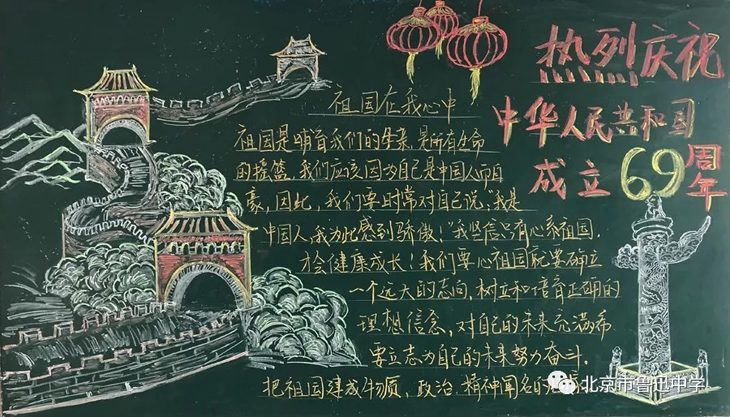 热烈庆祝
中华人民共和国
成立69周年
祖国在我心中
祖国是哺育我们的母亲,是所有生命
的摇篮,我们应该因为自己是中国人而自
豪,因此,我们要时常对自己说,"我是
中国人,我为此感到骄傲!"我坚信只有心系祖国,
才会健康成长!我们要心祖国就要确立
一个远大的志向,树立和培育正确的
理想信念,对自己的未来充满希
要立志为自己的未来努力奋斗,
把祖国建成物质、政治、精神闻名的
北京市鲁迅中学